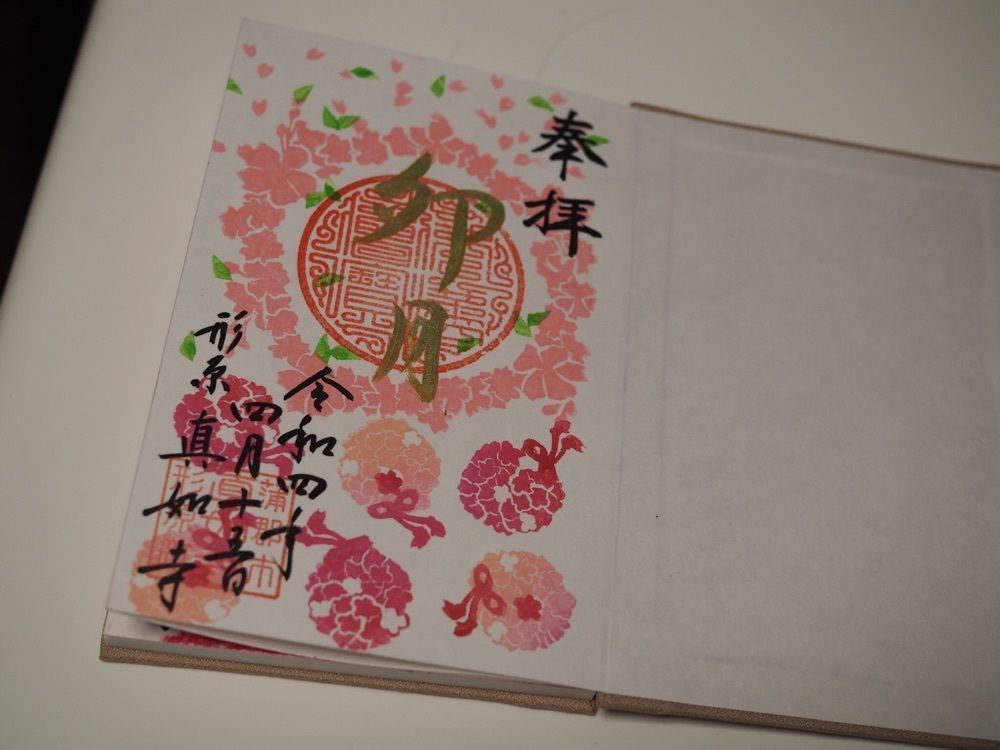 奉拝
卯月
令和四年
四月十五日
形原 真如寺
蒲郡市